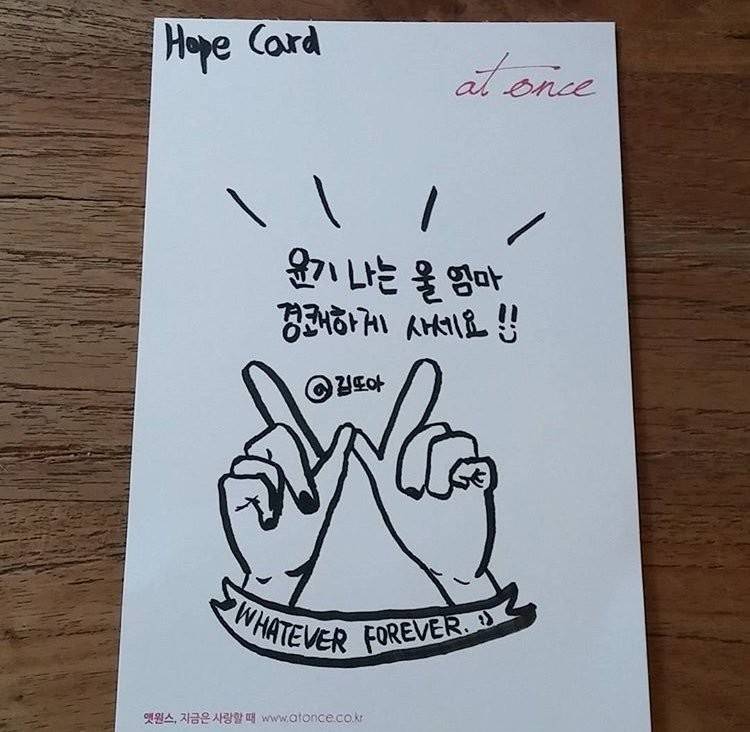 Hope Card
at once
윤기 나는 울 엄마
경쾌하게 사세요 !!
@김또아
WHATEVER FOREVER. :)
앳원스, 지금은 사랑할 때 www.atonce.co.kr